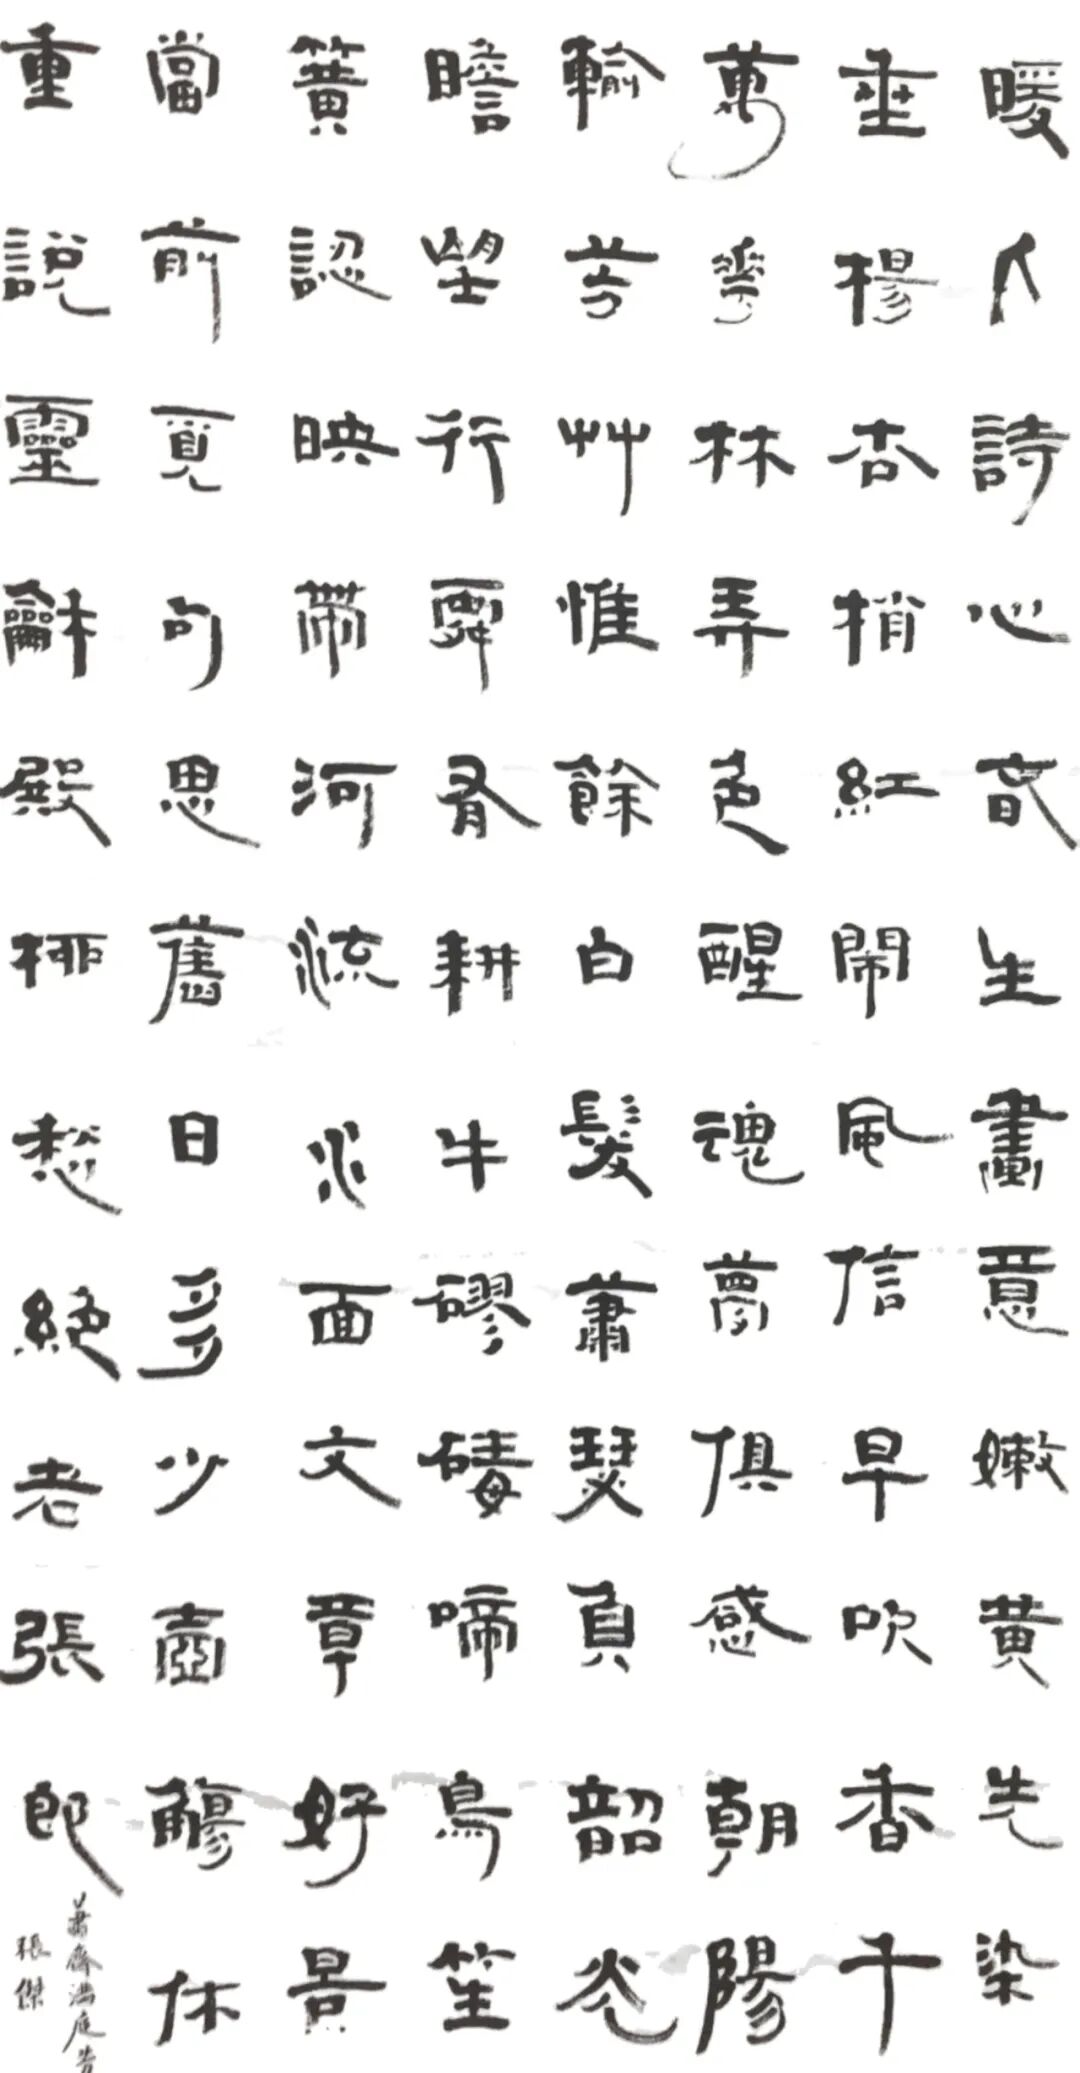 暖入詩心旾生畫意嫩黄先染
垂楊杏梢紅鬧風信早吹香千
萬華林弄色醒魂夢俱感朝陽
輸芳艸惟餘白髮蕭瑟負韶光
瞻望行處有耕牛磟碡啼鳥笙
簧認映帶河流水面文章好景
當前覓句思舊日多少壺觴休
重說靈龢殿桺愁絕老張郎
蕭齋滿庭芳
張傑